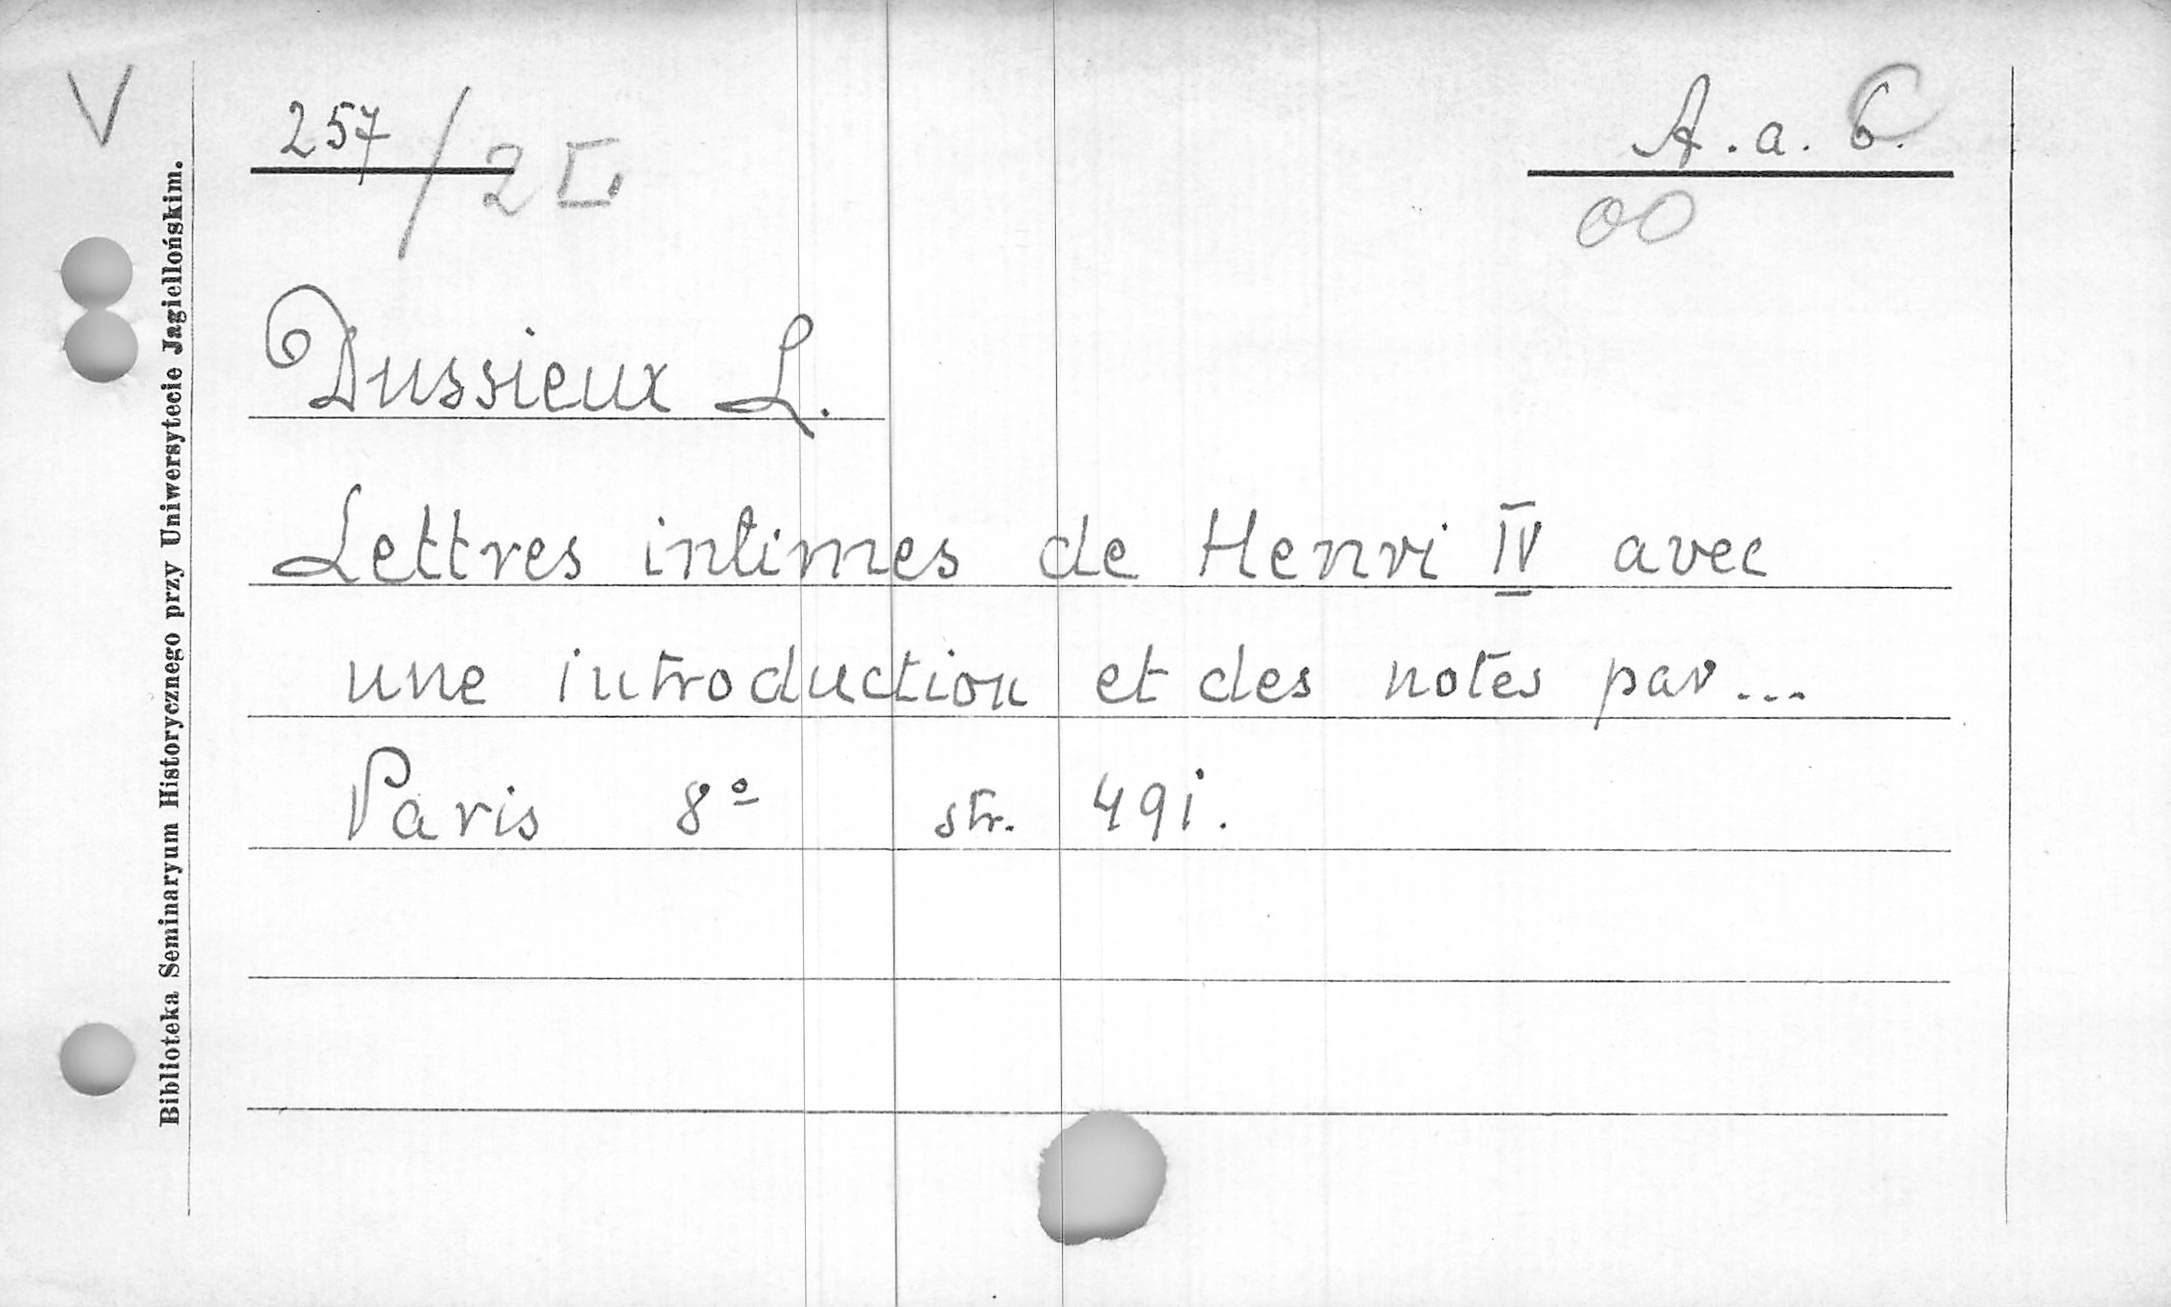 V
257/2 I.
A. a. 6.
00
Dussieux L.
Lettres intimes de Henri IV avec
une introduction et des notes par...
Paris 8º str. 491.
Biblioteka Seminaryum Historycznego przy Uniwersytecie Jagiellońskim.